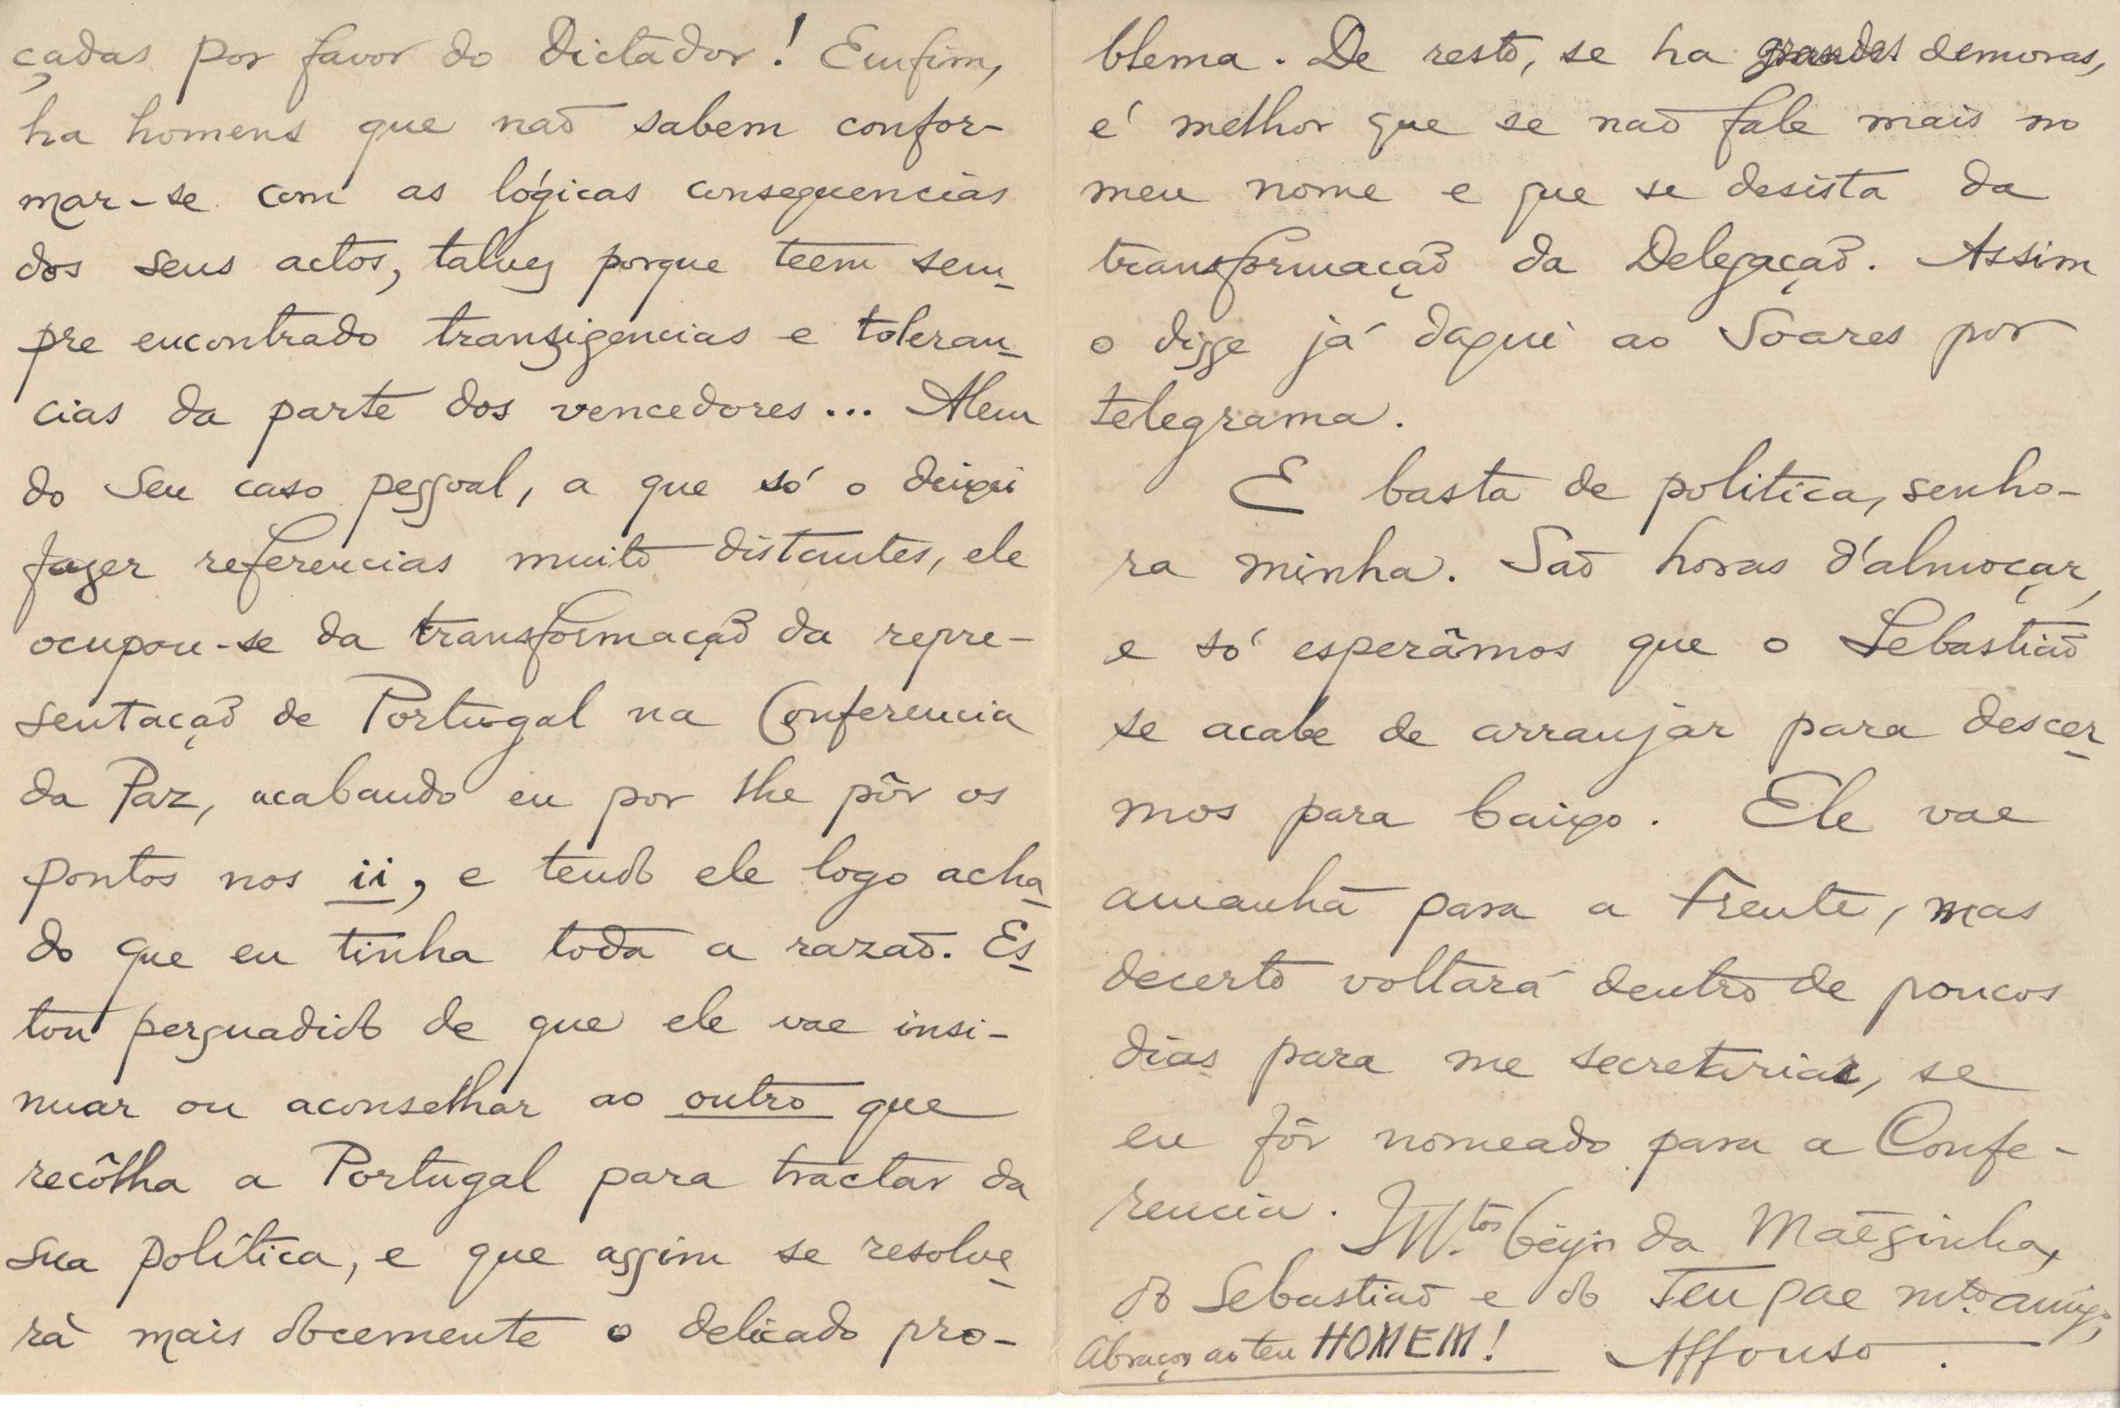 çadas por favor do Dictador! Emfim,
ha homens que não sabem confor-
mar-se com as lógicas consequencias
dos seus actos, talvez porque teem sem-
pre encontrado transigencias e toleran-
cias da parte dos vencedores... Alem
do seu caso pessoal, a que só o deixei
fazer referencias muito distantes, ele
ocupou-se da transformação da repre-
sentação de Portugal na Conferencia
da Paz, acabando eu por lhe pôr os
pontos nos ii, e tendo ele logo acha-
do que eu tinha toda a razão. Es-
tou persuadido de que ele vae insi-
nuar ou aconselhar ao outro que
recôlha a Portugal para tractar da
sua política, e que assim se resolve-
rà mais docemente o delicado pro-
blema. De resto, se ha grandes demoras,
é melhor que se não fale mais no
meu nome e que se desista da
transformação da Delegação. Assim
o disse já daqui ao Soares por
telegrama.
E basta de politica, senho-
ra minha. São horas d'almoçar,
e só esperâmos que o Sebastião
se acabe de arranjar para descer-
mos para baixo. Ele vae
amanhã para a Frente, mas
decerto voltará dentro de poucos
dias para me secretariar, se
eu fôr nomeado para a Confe-
rencia. M.tos beijos da Mãesinha,
do Sebastião e do Teu pae mto amigo,
Abraços ao teu HOMEM! Affonso.